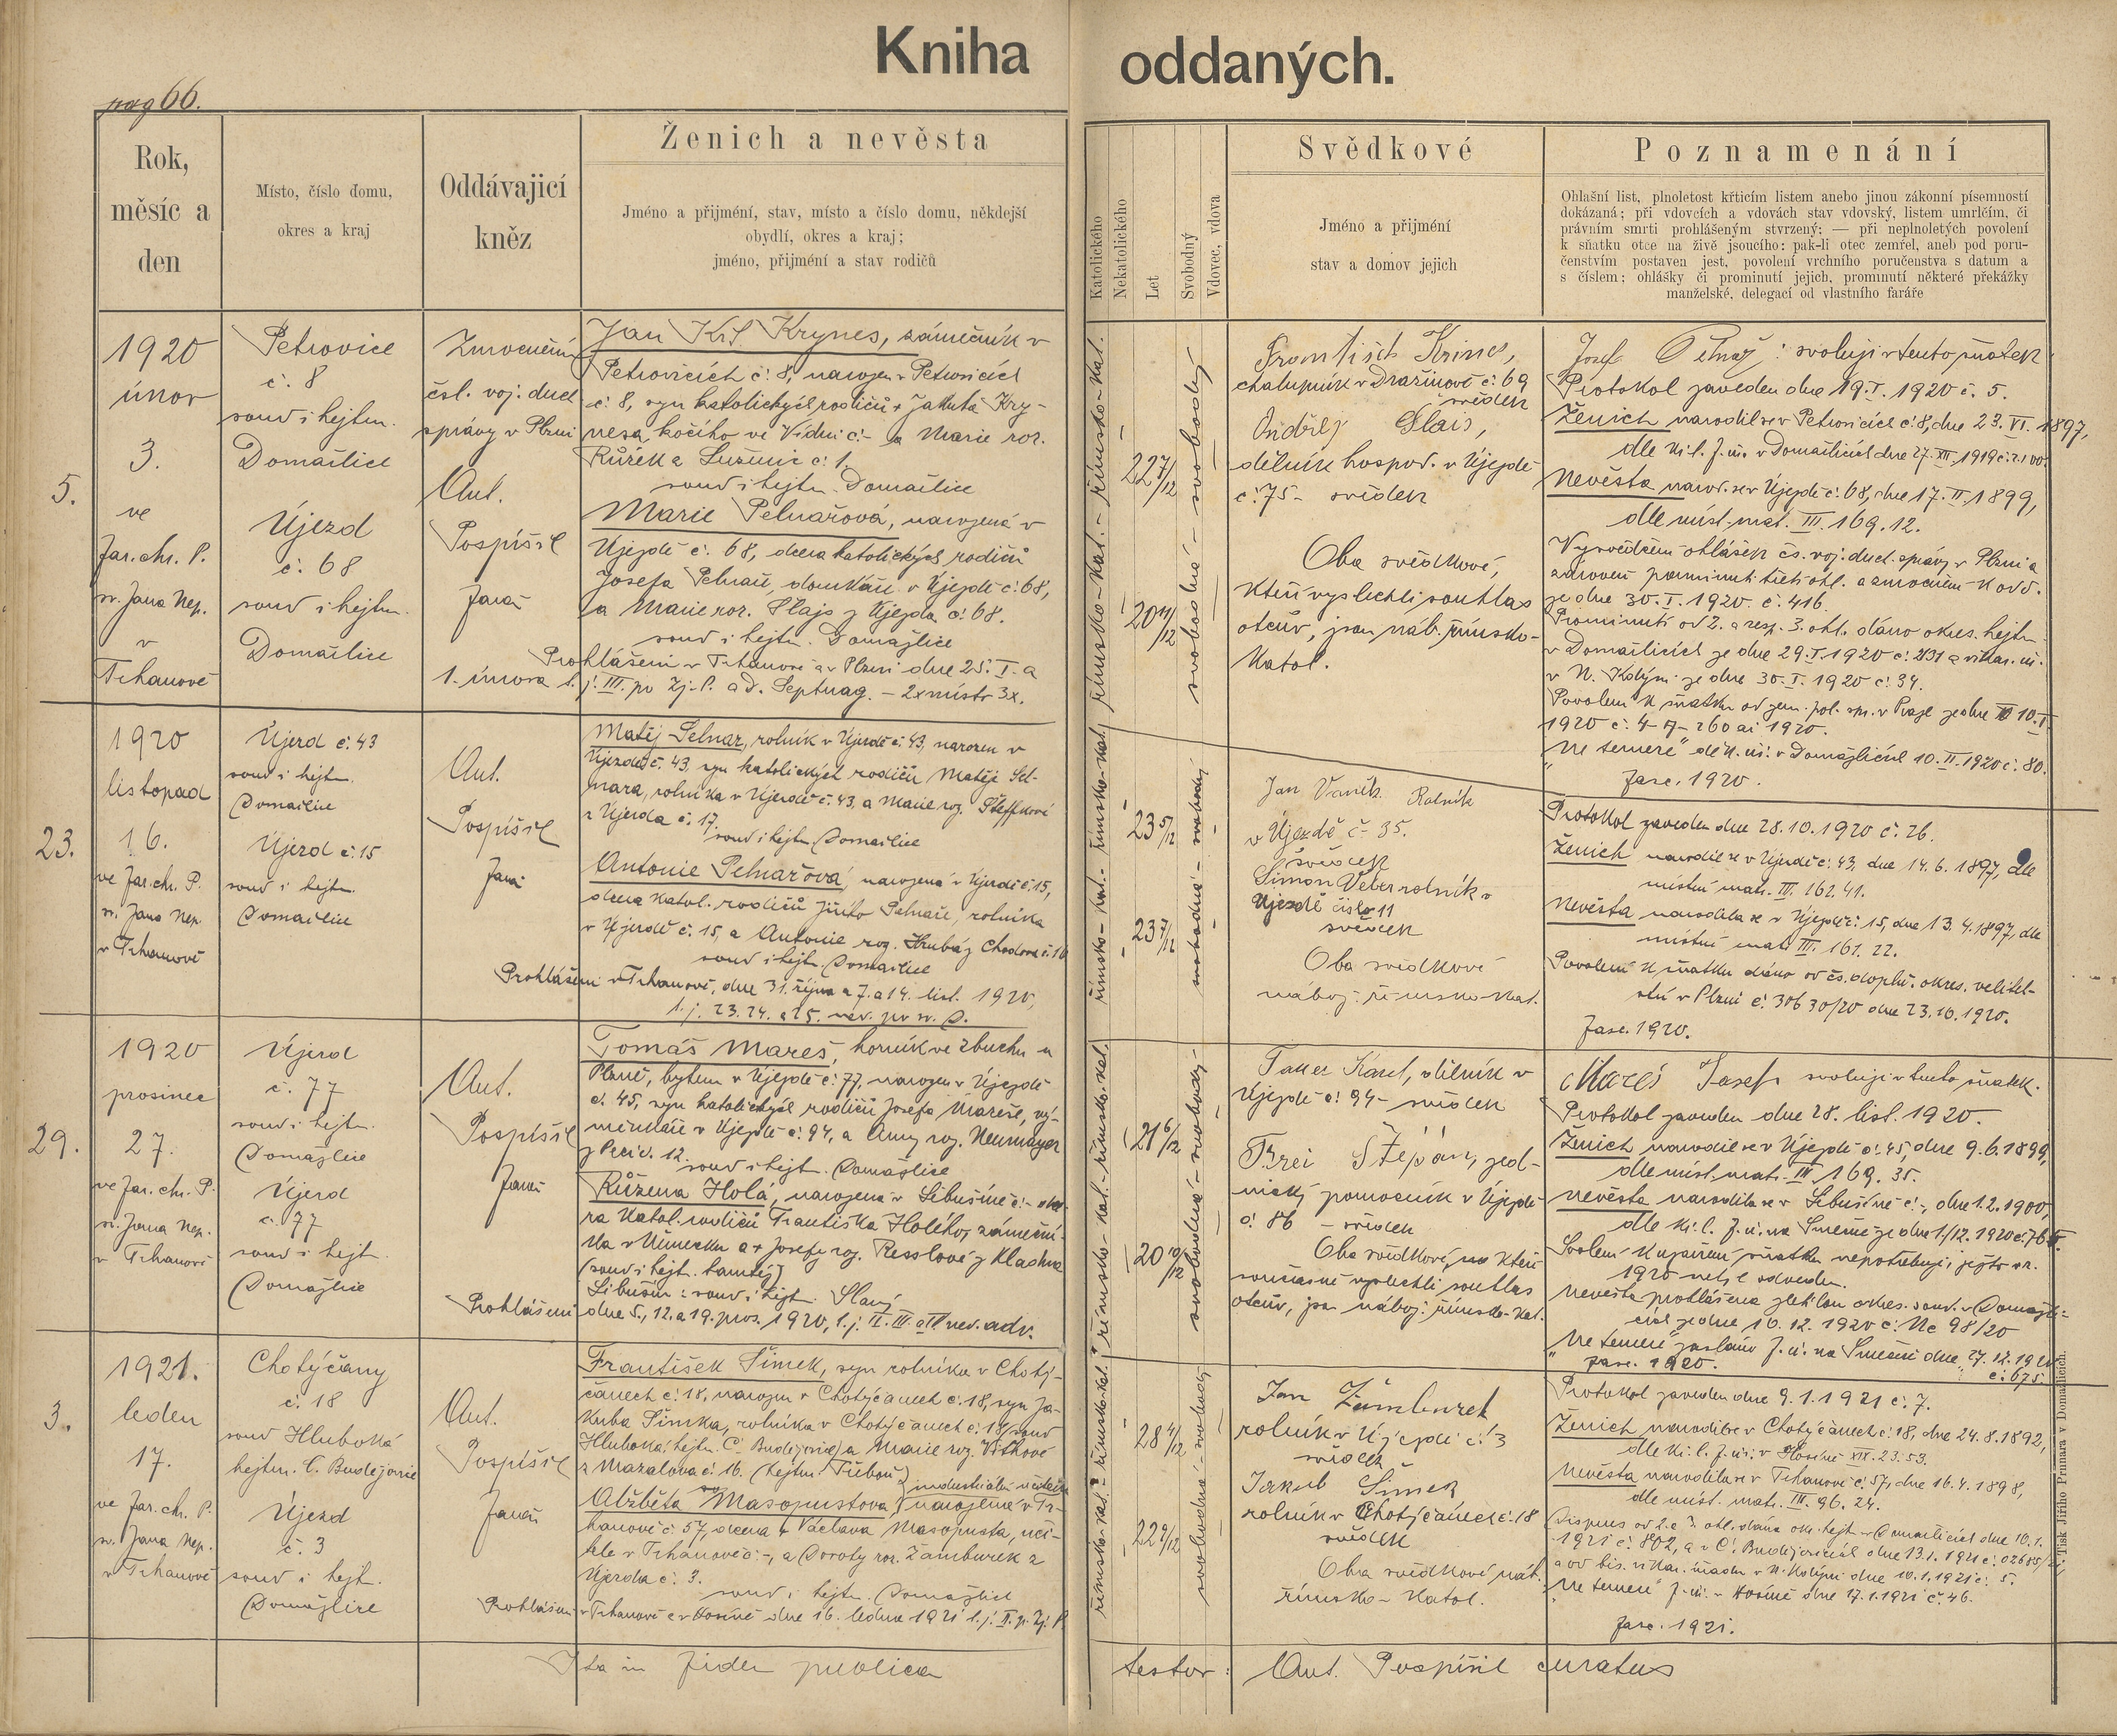 Kniha oddaných.
pag 66.
Rok,
měsíc a
den
Místo, číslo domu,
okres a kraj
Oddávající
kněz
Ženich a nevěsta
Jméno a přijmení, stav, místo a číslo domu, někdejší
obydlí, okres a kraj;
jméno, přijmení a stav rodičů
Katolického
Nekatolického
Let
Svobodný
Vdovec, vdova
Svědkové
Jméno a přijmení
stav a domov jejich
Poznamenání
Ohlašní list, plnoletost křticím listem anebo jinou zákonní písemností
dokázaná; při vdovcích a vdovách stav vdovský, listem umrlčím, či
právním smrti prohlášeným stvrzený; — při neplnoletých povolení
k sňatku otce na živě jsoucího: pak-li otec zemřel, aneb pod poru-
čenstvím postaven jest, povolení vrchního poručenstva s datum a
s číslem; ohlášky či prominutí jejich, prominutí některé překážky
manželské, delegací od vlastního faráře
5.
1920
únor
3.
ve
far. chr. P.
sv. Jana Nep.
v
Trhanově
Petrovice
č. 8
soud i hejtm.
Domažlice
Újezd
č. 68
soud i hejtm.
Domažlice
Zmocnění
čsl. voj. duch
správy v Plzni
Ant.
Pospíšil
farář
Jan Kř. Krynes, zámečník v
Petrovicích č. 8, narozen v Petrovicích
č. 8, syn katolických rodičů + Jakuba Kry-
nesa, kočího ve Vídni č. - a Marie roz.
Růžek z Luženic č. 1.
soud i hejtm. Domažlice
Marie Pelnařová, narozená v
Újezdě č. 68, dcera katolických rodičů
Josefa Pelnaře, domkáře v Újezdě č. 68,
a Marie roz. Glajs z Újezda č. 68.
soud i hejtm. Domažlice
Prohlášeni v Trhanově a v Plzni dne 25. I. a
1. února t. j. III. po Zj. P. a D. Septuag. - 2x místo 3x.
římsko-kat. - římsko-kat.
22 7/12
20 11/12
svobodná - svobodný
František Krines,
chalupník v Dražinově č. 69
svědek
Ondřej Glais,
dělník hospod. v Újezdě
č. 75 - svědek
Oba svědkové,
kteří vyslechli souhlas
otcův, jsou náb. římsko-
katol.
Josef Pelnař: svoluji v tento sňatek
Protokol zaveden dne 19. I. 1920 č. 5.
Ženich narodil se v Petrovicích č. 8, dne 23. VI. 1897,
Nevěsta narod. se v Újezdě č. 68, dne 17. II. 1899,
dle míst. mat. III. 169. 12.
Vysvědčení ohlášek čs. voj. duch. správy v Plzni a
zároveň prominutí třetí ohl. a zmocnění k odd.
ze dne 30. I. 1920. č. 416.
Prominutí od 2. a resp. 3. ohl. dáno okres. hejtm.
v Domažlicích ze dne 29. I. 1920 a vikar. úř.
v N. Kdyni ze dne 30. I. 1920 č. 34.
Povolení k sňatku od zem. pol. spr. v Praze ze dne 10. I.
„Ne temere" děk. úř. v Domažlicích 10. II. 1920 č. 80.
fasc. 1920.
23.
1920
listopad
16.
ve far. chr. P.
sv. Jana Nep.
v Trhanově
Újezd č. 43
soud i hejtm.
Domažlice
Újezd č. 15
soud i hejtm.
Domažlice
Ant.
Pospíšil
farář
Matěj Selnar, rolník v Újezdě č. 43, narozen v
Újezdě č. 43, syn katolických rodičů Matěje Sel-
nara, rolníka v Újezdě č. 43, a Marie roz. Steffkové
z Újezda č. 17.
soud i hejtm. Domažlice
Antonie Pelnařová, narozená v Újezdě č. 15,
dcera katol. rodičů Jiřího Pelnaře, rolníka
v Újezdě č. 15, a Antonie roz. Hrubá z Chodova č. 16
soud i hejtm. Domažlice
Prohlášeni v Trhanově, dne 31. října a 7. a 14. list. 1920,
t. j. 23. 24. a 25. ned. po sv. D.
římsko-kat. - římsko-kat.
23 5/12
23 7/12
svobodná - svobodný
Jan Vaněk Rolník
v Újezdě č. 35.
svědek
Šimon Veber rolník v
Újezdě číslo 11
svědek
Oba svědkové
nábož. římsko-kat.
Protokol zaveden dne 28. 10. 1920 č. 26.
Ženich narodil se v Újezdě č. 43, dne 14. 6. 1897, dle
místní matr. III. 162. 41.
Nevěsta narodila se v Újezdě č. 15, dne 13. 4. 1897, dle
místní matr. III. 161. 22.
Povolení k sňatku dáno od čs. doplň. okres. velitel-
ství v Plzni č. 30630/20 dne 23. 10. 1920.
fasc. 1920.
29.
1920
prosinec
27.
ve far. chr. P.
sv. Jana Nep.
v Trhanově
Újezd
č. 77
soud i hejtm.
Domažlice
Újezd
č. 77
soud i hejt.
Domažlice
Ant.
Pospíšil
farář
Tomáš Mareš, horník ve Zbuchu u
Plzně, bytem v Újezdě č. 77, narozen v Újezdě
č. 45, syn katolických rodičů Josefa Mareše, vý-
měnkáře v Újezdě č. 94, a Anny roz. Neumayer
z Peci č. 12. soud i hejt. Domažlice
Růžena Holá, narozená v Libušíně č. - dce-
ra katol. rodičů Františka Holého, zámeční-
ka v Německu a + Josefy roz. Resslové z Kladna
(soud i hejt. tamtéž)
Libušín: soud i hejt. Slaný
Prohlášeni dne 5., 12. a 19. pros. 1920, t. j. II. III. a IV. ned. adv.
římsko-kat. - římsko-kat.
21 6/12
20 10/12
svobodná - svobodný
Taker Karel, dělník v
Újezdě č. 94 - svědek
Brei Štěpán, zed-
nický pomocník v Újezdě
č. 86 - svědek
Oba svědkové,
současně vyslechli souhlas
otcův, jsou nábož. římsko-kat.
Mareš Josef svoluji v tento sňatek.
Protokol zaveden dne 28. list. 1920.
Ženich narodil se v Újezdě č. 45, dne 9. 6. 1899,
dle míst. matr. III. 169. 35.
Nevěsta narodila se v Libušíně č. -, dne 1. 2. 1900,
Nevěsta prohlášena zletilou okres. soud. v Domažli-
cích ze dne 10. 12. 1920 č. Nc 98/20
„Ne temere" zasláno f. ú. na Smečně dne 27. 12. 1920
fasc. 1920. č. 675.
3.
1921.
leden
17.
ve far. chr. P.
sv. Jana Nep.
v Trhanově
Chotýčany
č. 18
soud Hluboká
hejtm. Č. Budějovice
Újezd
č. 3
soud i hejt.
Domažlice
Ant.
Pospíšil
farář
František Šimek, syn rolníka v Chotý-
čanech č. 18, narozen v Chotýčanech č. 18, syn Ja-
kuba Šimka, rolníka v Chotýčanech č. 18, soud
Hluboká, hejtm. Č. Budějovice, a Marie roz. Vítkové
z Mazelova č. 16. (hejtm. Třeboň)
industriální učitelka
Alžběta Masopustova, narozená v Tr-
hanově č. 57, dcera + Václava Masopusta, uči-
tele v Trhanově č. -, a Doroty roz. Žambůrek z
Újezda č. 3.
soud i hejt. Domažlice
Prohlášeni v Trhanově a v Hosíně dne 16. ledna 1921 t. j. II. p. Zj. P.
římsko-kat. - římsko-kat.
28 4/12
22 9/12
svobodná - svobodný
Jan Žambůrek
rolník v Újezdě č. 3
svědek
Jakub Šimek
rolník v Chotýčanech č. 18
svědek
Oba svědkové náb.
římsko-katol.
Protokol zaveden dne 9. 1. 1921 č. 7.
Ženich narodil se v Chotýčanech č. 18, dne 24. 8. 1892,
dle kř. l. f. úř. v Hosíně XIX. 23. 53.
Nevěsta narodila se v Trhanově č. 57, dne 16. 4. 1898,
dle míst. matr. III. 96. 24.
Dispens od 2. a 3. ohl. dána ok. hejt. v Domažlicích dne 10. 1.
1921 č. 802, a v Č. Budějovicích dne 13. 1. 1921
a od bis. vikar. úřadu v N. Kdyni dne 10. 1. 1921 č. 5.
„Ne temere" f. úř. v Hosíně dne 17. 1. 1921 č. 46.
fasc. 1921.
Tisk Jiřího Prunara v Domažlicích.
Ita in fidem publicam testor: Ant. Pospíšil curatus